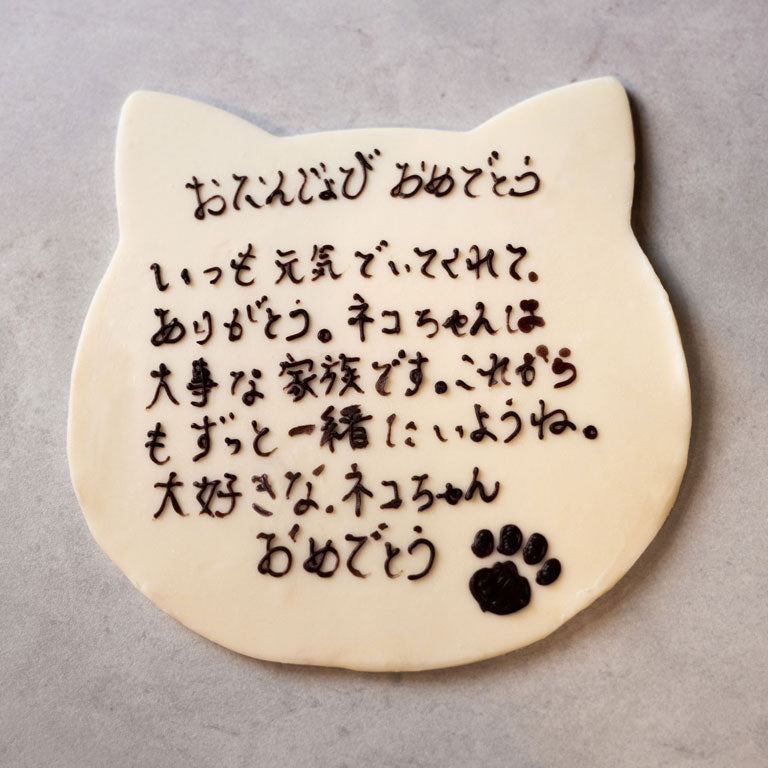 おたんじょび おめでとう
いつも元気でいてくれて、
ありがとう。ネコちゃんは
大事な家族です。これから
もずっと一緒にいようね。
大好きな、ネコちゃん
おめでとう